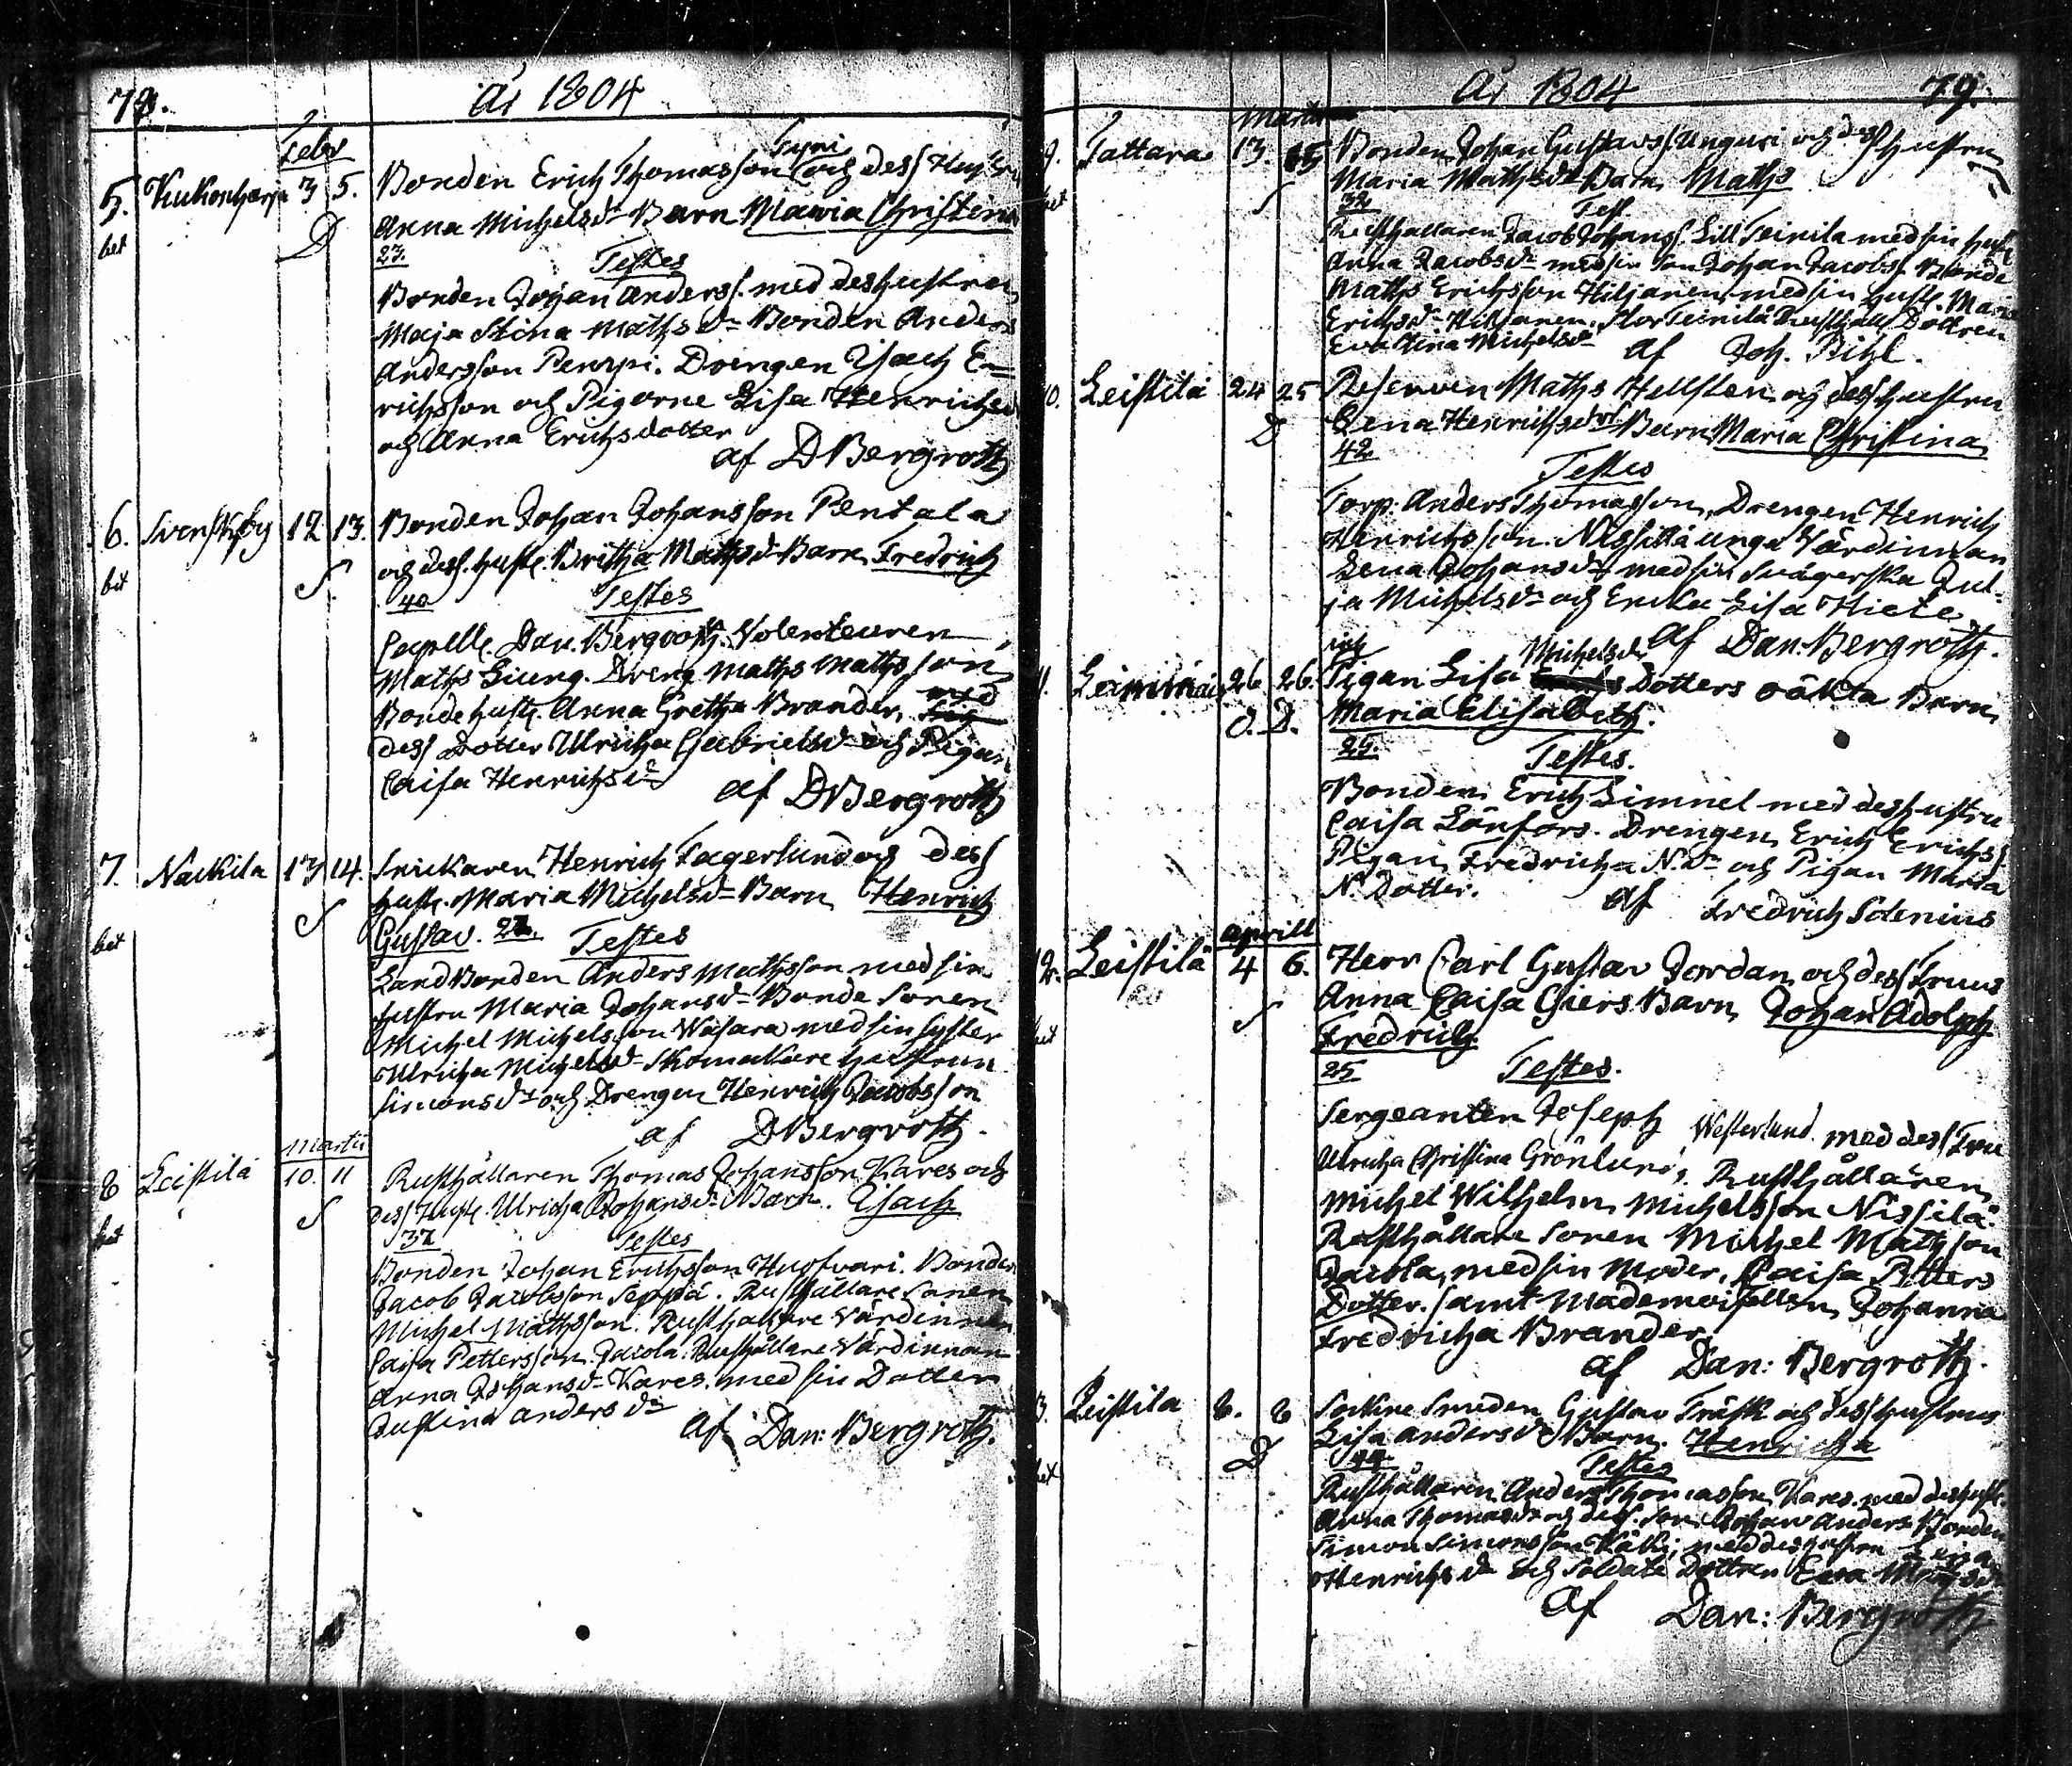 78. År 1804
Febr
5. Kukonharja 3 5. Bonden Erich Thomasson Tyni och dess Hustru
bet D Anna Michelsdr Barn Maria Christina
27. Testes
Bonden Johan Anderss. med dess hustru
Maja Stina Mathsdr Bonden Anders
Andersson Penspi. Drengen Isach E=
richsson och Pigorne Lisa Henrichsdr
och Anna Erichsdotter
af D Bergroth
6. Svenskby 12 13. Bonden Johan Johansson Pentala
bet S och dess hustr. Britha Mathsdr Barn Fredrich
40 Testes
Capell. Dan. Bergroth. Volenteuren
Maths Liung. Dreng Maths Mathsson
Bonde hustr. Anna Gretha Brander, med
dess Dotter Ulricha Gabrielsdr och Pigan
Caisa Henrichsdr af D Bergroth
7. Nackila 13 14. Snickaren Henrich Fagerlund och dess
S hustr. Maria Michelsdr Barn Henrich
bet Gustav. 27. Testes
Land Bonden Anders Mathsson med sin
hustru Maria Johansdr Bonde Sonen
Michel Michelsson Wasara med sin syster
Ulricha Michelsdr Skomakare hustrun
Simonsdr och Drengen Henrich Jacobsson
af D Bergroth.
Martii
8 Leistilä 10. 11 Rusthållaren Thomas Johansson Kares och
bet S dess Hustr. Ulricha Johansdr Barn. Isach
37 Testes
Bonden Johan Erichsson Huofvari. Bonden
Jacob Jacobsson Seppä. Rusthållare Sonen
Michel Mathsson. Rusthållare Värdinnan
Caisa Pettersson Jacola. Rusthållare Värdinnan
Anna Johansdr Kares. med sin Dotter
Justina Andersdr af Dan: Bergroth.
År 1804 79.
Martii
9. Tattara 13. 15 Bonden Johan Gustavs. Unguri och dess hustru
bet S Maria Mathsdr Barn Maths
32 Test.
Rusthållaren Jacob Johans. Lill Teinila med sin hustr.
Anna Jacobsdr med sin Son Johan Jacobs. Bonde
Maths Erichsson Hiljanen med sin hustr. Maria
Erichsdr Hiljanen. Stor Teinilä Rusthåll. Dottren
Eva Stina Michelsdr af Joh. Pihl.
10. Leistilä 24 25 Reserven Maths Hellsten och dess hustru
D Lena Henrichsdr Barn Maria Christina
42 Testes
Torp. Anders Thomasson, Drengen Henrich
Henrichsson. Nissilä unga Värdinnan
Lena Johansdr med sin Svägerska Jul=
ja Michelsdr och Ericka Lisa Hiete
af Dan. Bergroth.
11. 26. 26. Pigan Lisa Michelsdr Dotters oäkta Barn
O. D. Maria Elisabeth.
29. Testes.
Bonden Erich Simnel med dess hustru
Caisa Lönfors. Drengen Erich Erichs.
Pigan Fredricha N.dr och Pigan Maria
N. Dotter. af Fredrich Sdenius
Aprill
12. Leistilä 4 6. Herr Carl Gustav Jordan och dess Fruus
bet S Anna Caisa Giers Barn Johan Adolph
Fredrich
25 Testes.
Sergeanten Joseph Westerlund. med dess Fru
Ulricha Christina Grönlund, Rusthållaren
Michel Wilhelm Michelsson Nissilä.
Rusthållare Sonen Michel Mathsson
Jacola, med sin Moder, Caisa Petters
Dotter. samt Mademoisellen Johanna
Fredricha Brander.
af Dan: Bergroth.
13. Leistila 8. 8 Sockne Smeden Gustav Träsk och dess hustrus
bet D Lisa Andersdr Barn. Henricha
44. Testes
Rusthållaren Anders Thomasson Kares med dess hustr.
Anna Thomasdr och dess. Son Johan Anders. Bonden
Simon Simonsson Käki, med dess hustru
Henrichsdr och Soldate Dottren Eva
af Dan: Bergroth